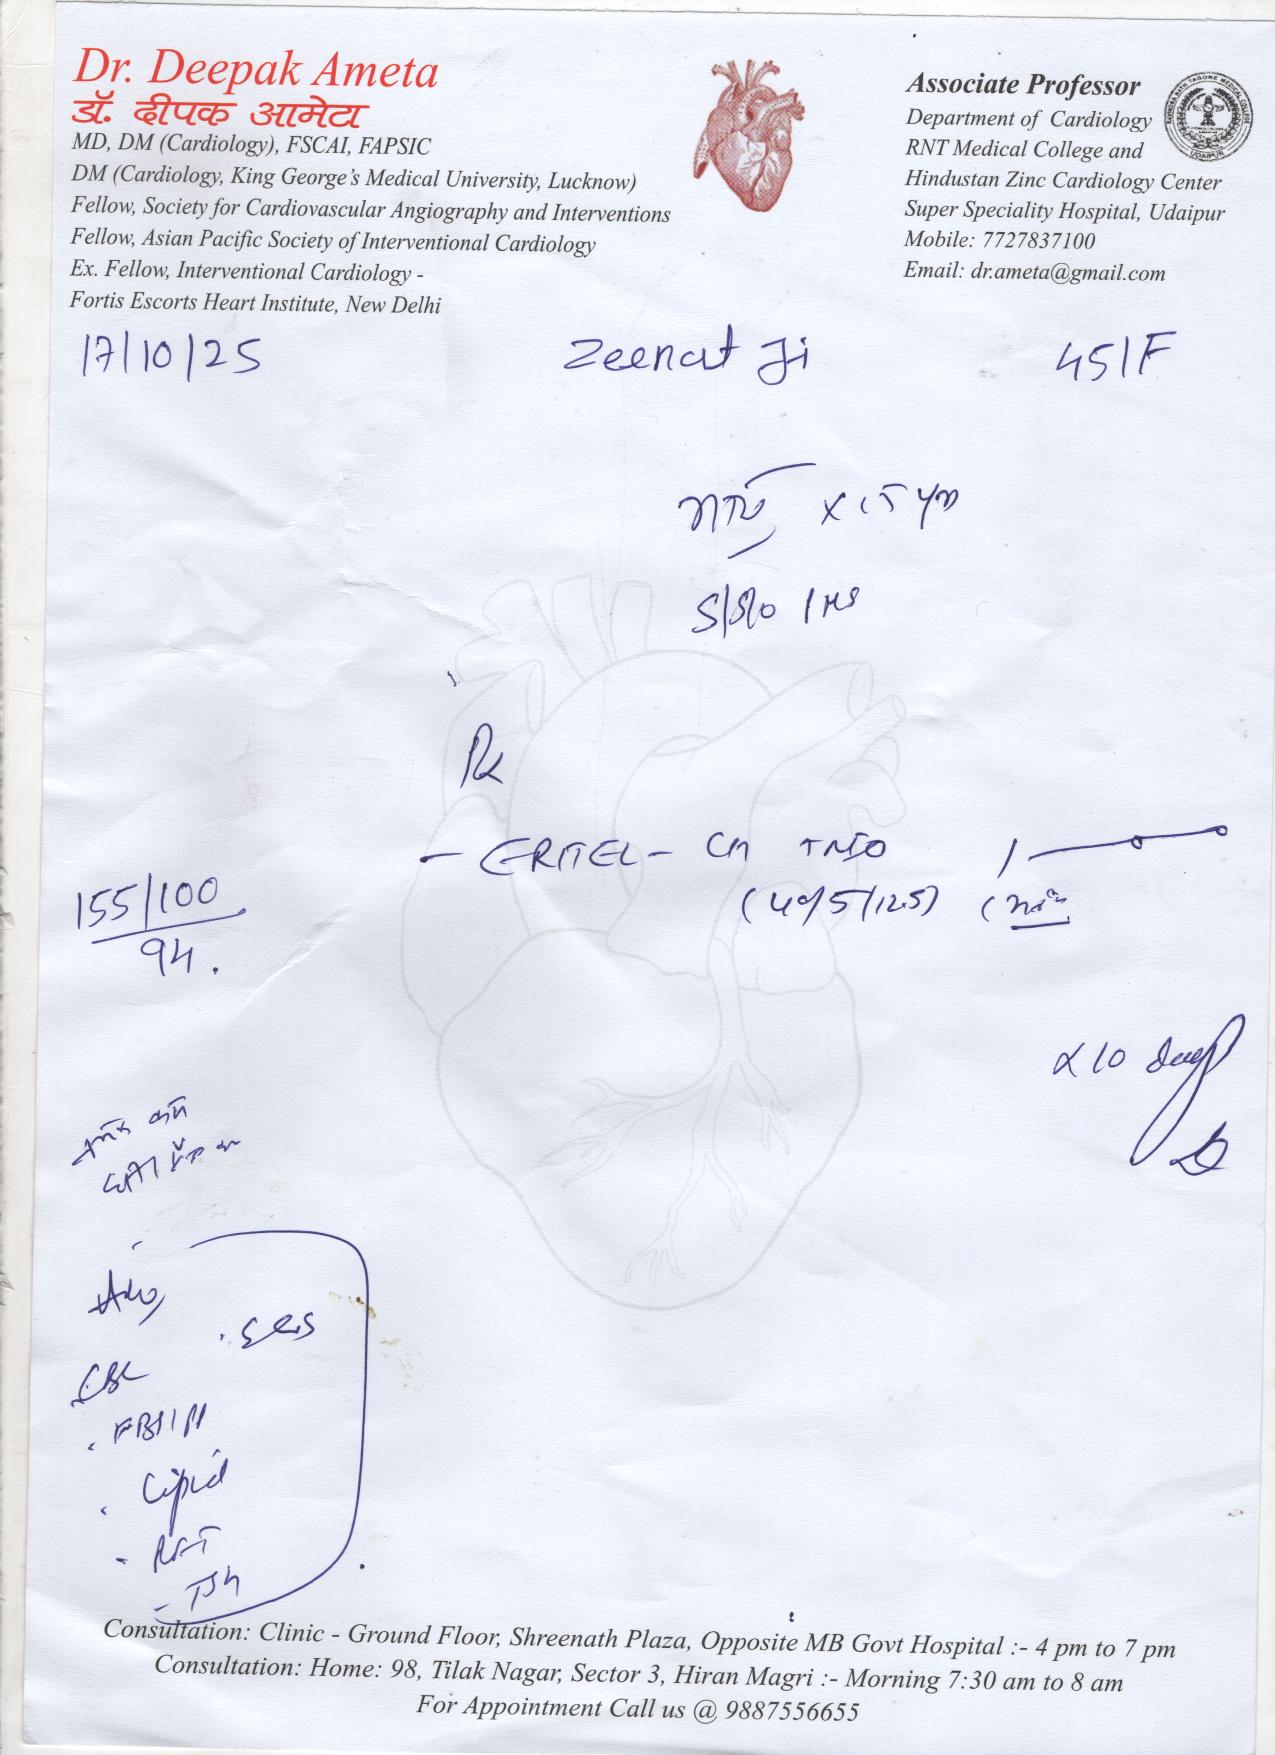 Dr. Deepak Ameta
डॉ. दीपक आमेटा
MD, DM (Cardiology), FSCAI, FAPSIC
DM (Cardiology, King George's Medical University, Lucknow)
Fellow, Society for Cardiovascular Angiography and Interventions
Fellow, Asian Pacific Society of Interventional Cardiology
Ex. Fellow, Interventional Cardiology -
Fortis Escorts Heart Institute, New Delhi
Associate Professor
Department of Cardiology
RNT Medical College and
Hindustan Zinc Cardiology Center
Super Speciality Hospital, Udaipur
Mobile: 7727837100
Email: dr.ameta@gmail.com
17/10/25 Zeenat Ji 45/F
Rx
- ERITEL - CH
(40/5/12.5)
155/100
94.
x 10 days
CBC
Lipid
- RFT
- TSH
Consultation: Clinic - Ground Floor, Shreenath Plaza, Opposite MB Govt Hospital :- 4 pm to 7 pm
Consultation: Home: 98, Tilak Nagar, Sector 3, Hiran Magri :- Morning 7:30 am to 8 am
For Appointment Call us @ 9887556655